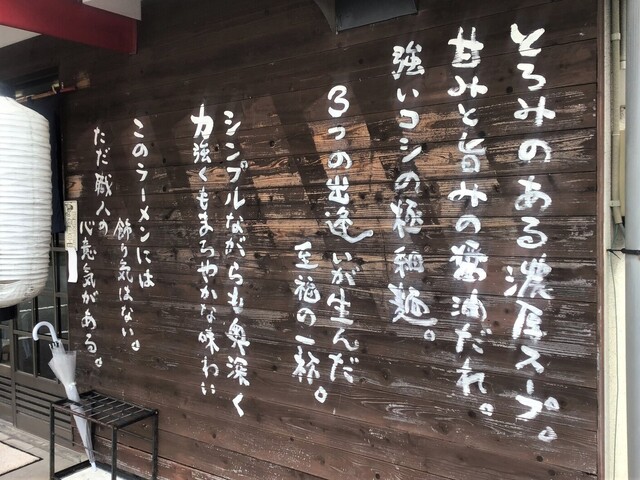 とろみのある濃厚スープ。
甘みと旨みの醤油だれ。
強いコシの極細麺。
3つの出逢いが生んだ
至福の一杯。
シンプルながらも奥深く
力強くもまろやかな味わい
このラーメンには
飾り気はない。
ただ職人の
心意気がある。